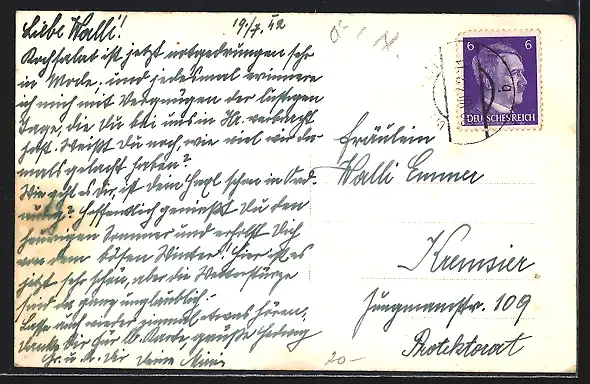 Liebe Walli!
19/7. 42
Kochsalat ist jetzt notgedrungen sehr
in Mode, und jedesmal erinnere
ich mich mit Vergnügen der lustigen
Tage, die Du bei uns in verbracht
hast. Weißt Du noch, wie viel wir da-
mals gelacht haben?
Wie geht es Dir, ist dein schon in Ord-
nung? Hoffentlich genießt Du den
heurigen Sommer und erholst Dich
von dem bösen Winter! Hier ist es
jetzt sehr schön, aber die Wetterstürze
sind ganz unglaublich.-
Lasse auch wieder einmal etwas hören,
danke Dir für d. Karte
Deine Mimi
6 6
DEUTSCHES REICH
Fräulein
Walli Emmer
Kremsier
Jungmannstr. 109
Protektorat
20-